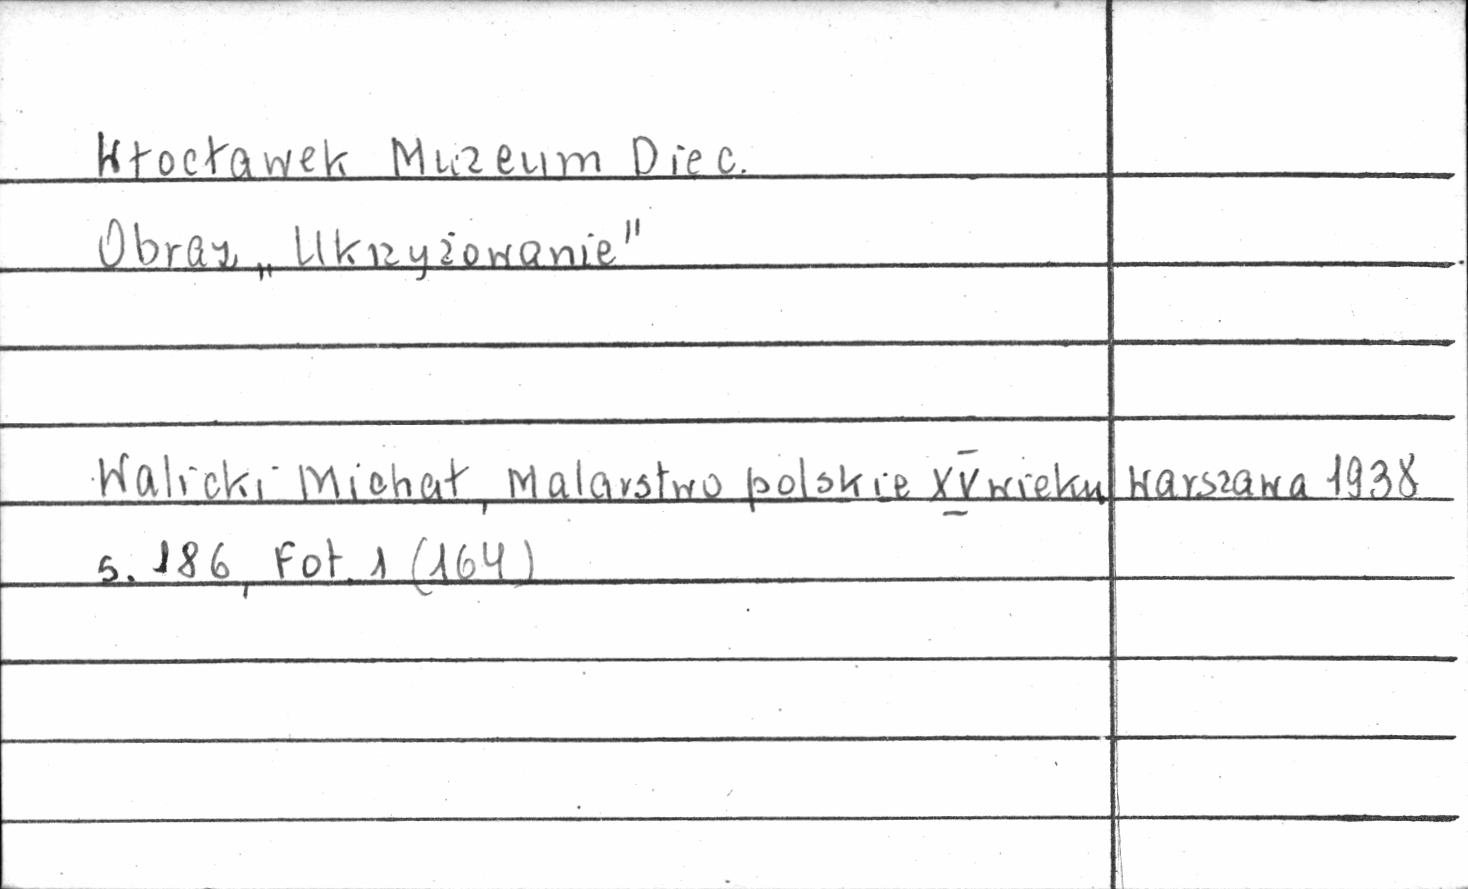 Włocławek Muzeum Diec.
Obraz „Ukrzyżowanie"
Walicki Michał, Malarstwo polskie XV wieku Warszawa 1938
s. 186, Fot. 1 (164)